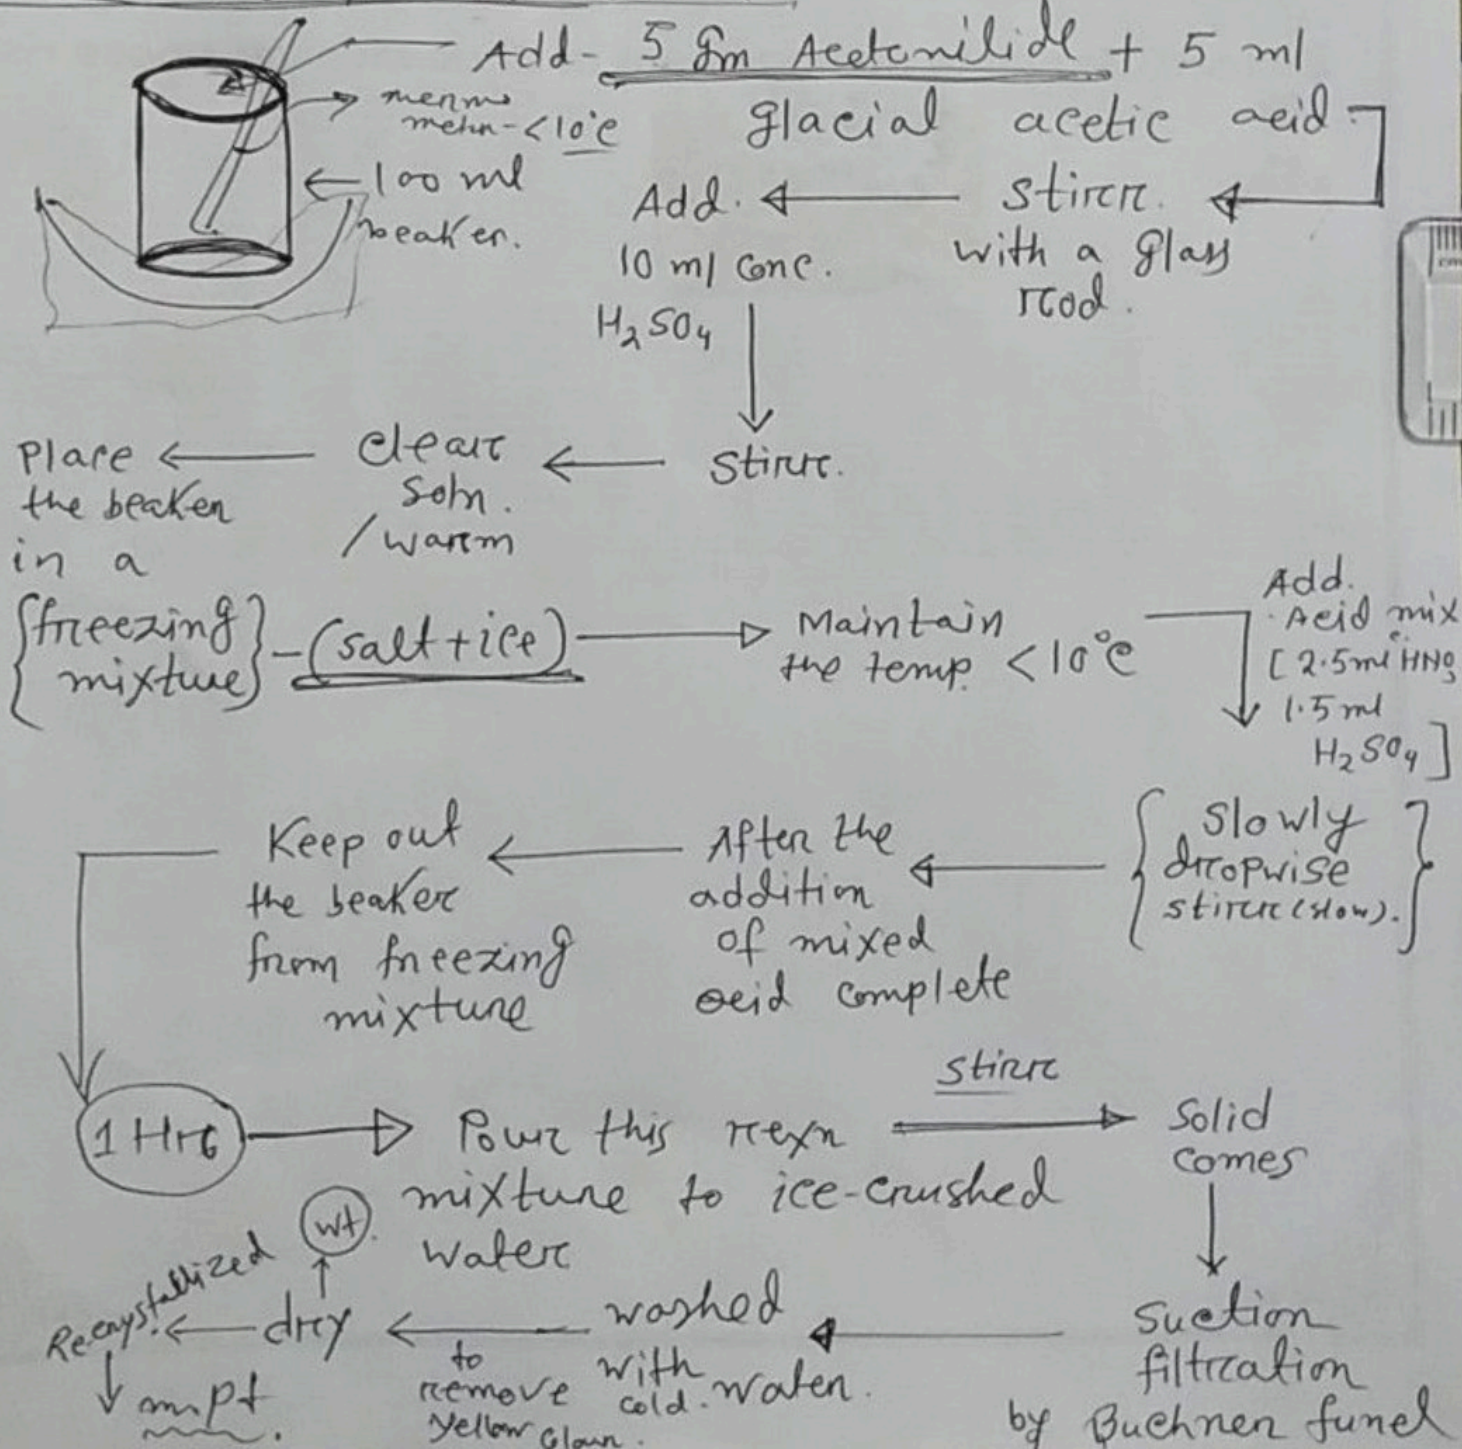 Add - 5 gm Acetanilide + 5 ml
glacial acetic acid
<10°C
← 100 ml
beaker.
stirr.
with a glass
rod.
Add.
10 ml conc.
H₂SO₄
Stirr.
clear
soln.
/warm
Place
the beaker
in a
{freezing
mixture} - (salt + ice)
Maintain
the temp. < 10°C
Add.
Acid mix
[2.5ml HNO₃
1.5 ml
H₂SO₄]
{Slowly
dropwise
stirr (slow).}
After the
addition
of mixed
acid complete
Keep out
the beaker
from freezing
mixture
1 Hr
Pour this rexn
mixture to ice-crushed
water
stirr
Solid
comes
Suction
filtration
by Buchner funel
washed
with
cold water.
to
remove
yellow
dry
wt.
Recrystallized
m.pt.